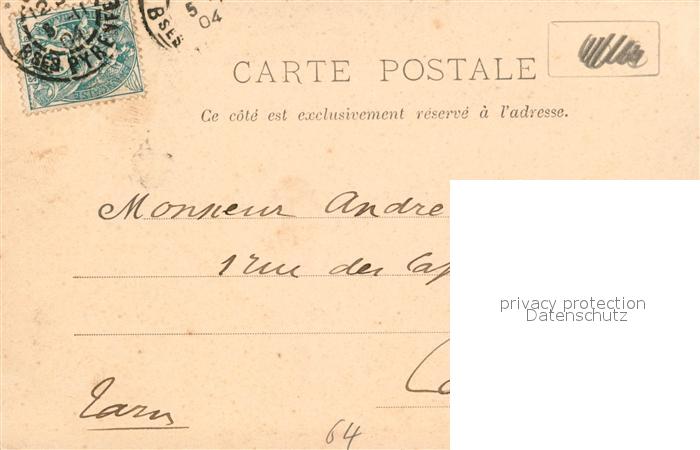 CARTE POSTALE
Ce côté est exclusivement réservé à l'adresse.
Monsieur André
1 rue des Cap
privacy protection
Datenschutz
Tarn
64
BSES PYRENEE
5
04
BSES